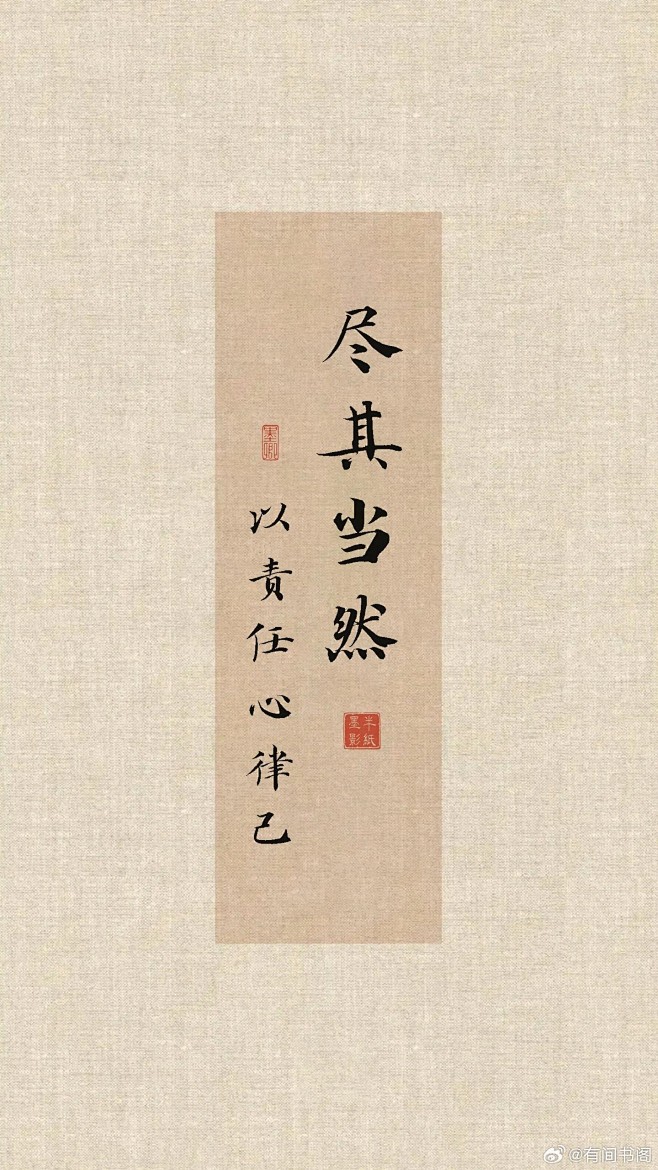 尽其当然
半纸
墨影
以责任心律己
@有间书阁